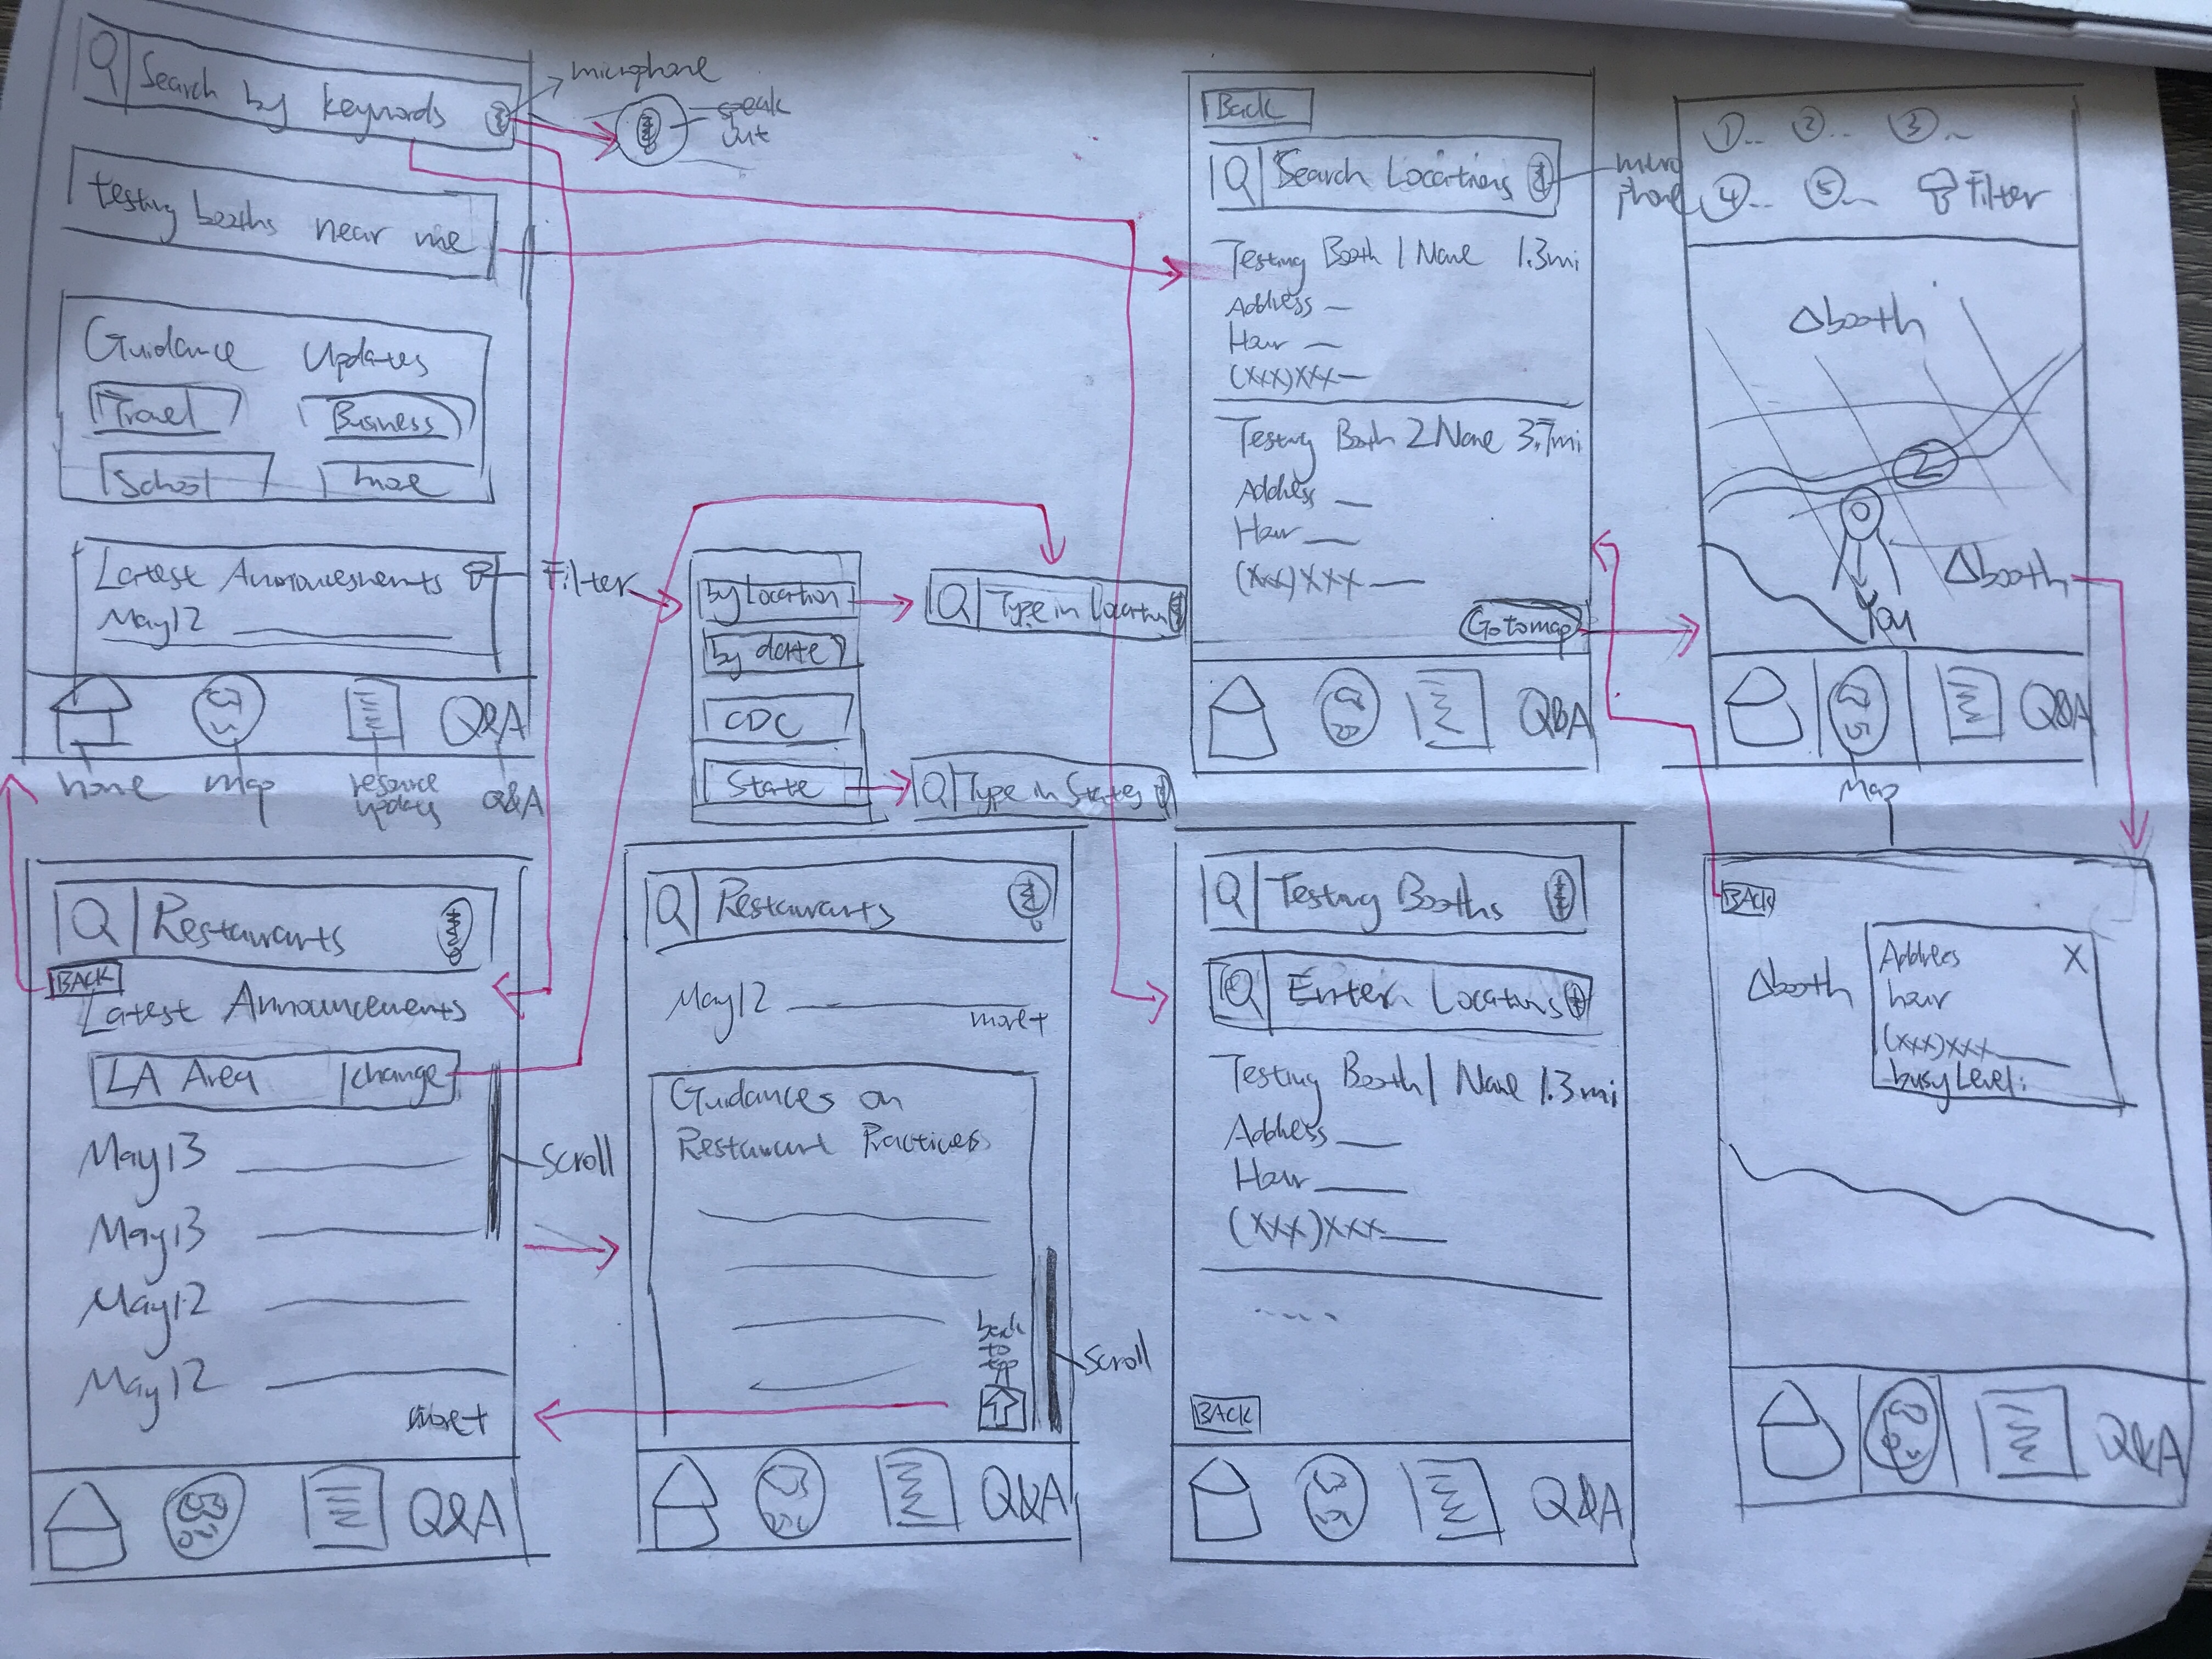 Search by keywords
microphone
speak out
testing booths near me
Guidance Updates
Travel Business
School more
Latest Announcements
Filter
May 12
Q&A
home map resource updates Q&A
by Location
by date
CDC
State
Type in Location
Type in States
Back
Search Locations
micro
phone
Testing Booth 1 Name 1.3mi
Address
Hour
(xxx)xxx
Testing Booth 2 Name 3.7mi
Address
Hour
(xxx)xxx
Go to map
Q&A
1.. 2.. 3..
4.. 5.. Filter
booth
2
booth
You
Q&A
Map
Restaurants
BACK
Latest Announcements
LA Area change
May 13
May 13
May 12
May 12
more+
Scroll
Q&A
Restaurants
May 12
more+
Guidances on
Restaurant Practices
back
to
top
Scroll
Q&A
Testing Booths
Enter Locations
Testing Booth 1 Name 1.3mi
Address
Hour
(xxx)xxx
BACK
Q&A
BACK
booth
Address X
hour
(xxx)xxx
busy Level:
Q&A